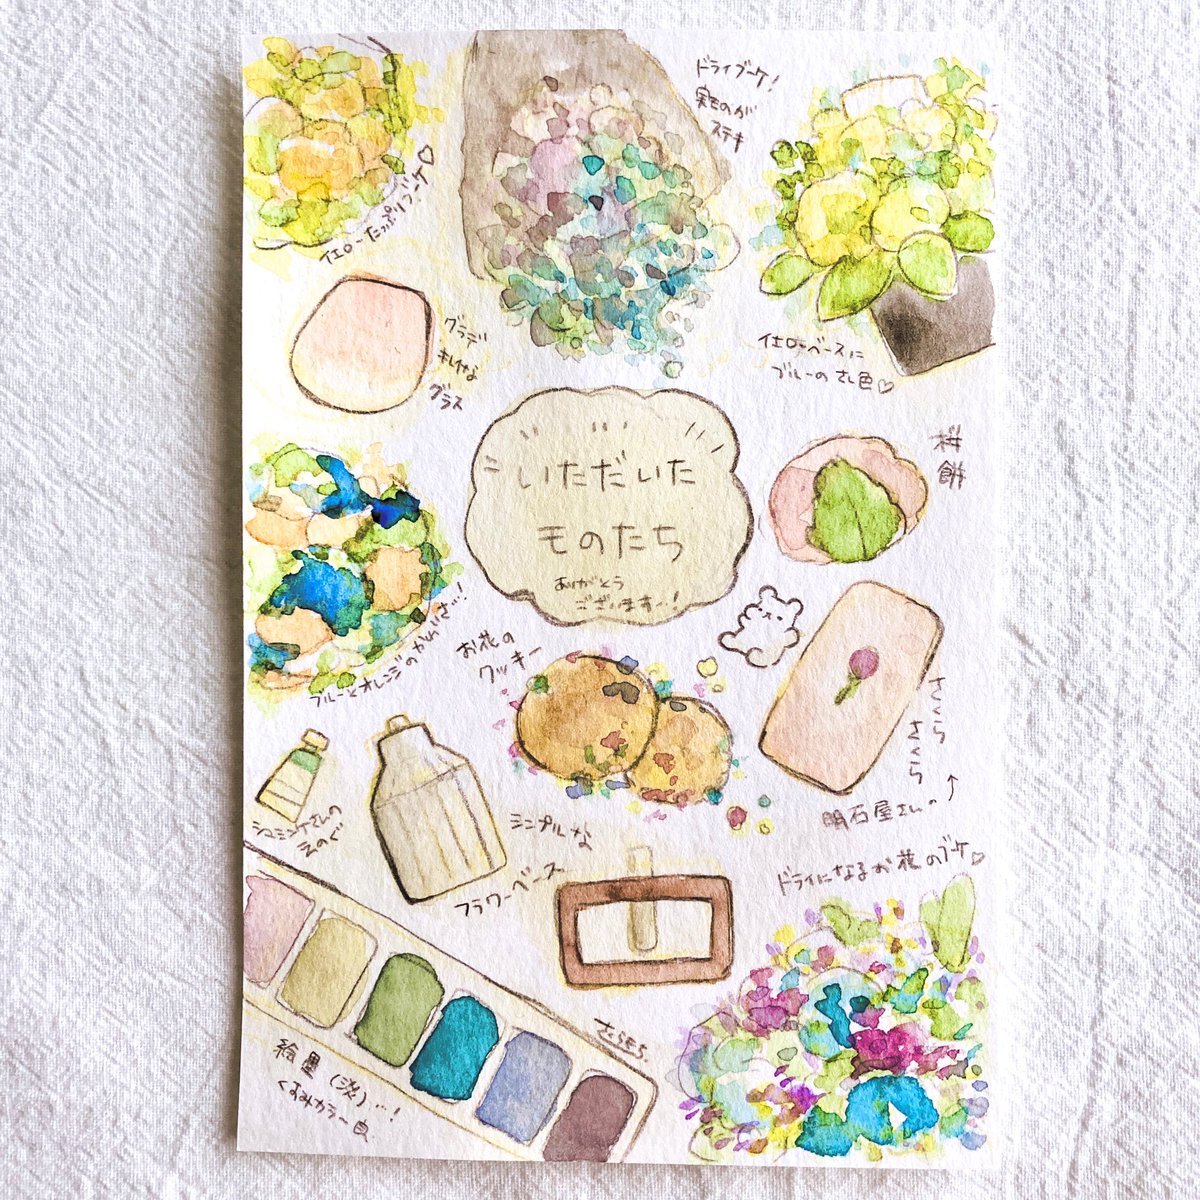 イエローたっぷりブーケ♡
ドライブーケ!
実ものが
ステキ
イエローベースに
ブルーのさし色♡
グラデ
キレイな
グラス
いただいた
ものたち
ありがとう
ございます…!
桜餅
ブルーとオレンジのかわいさ…!
お花の
クッキー
さくら
さくら
明石屋さんの
シュミンケさんの
えのぐ
シンプルな
フラワーベース
ドライになるお花のブーケ♡
さくらもち.
絵墨(淡)…!
くすみカラー良